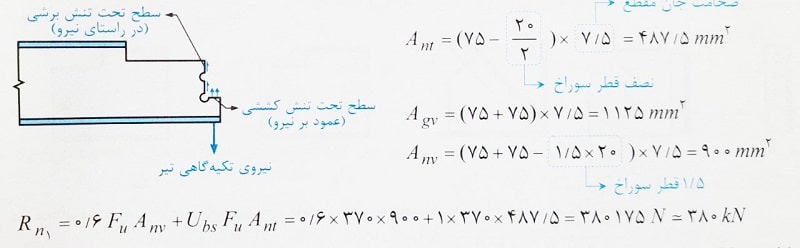 ضخامت جان مقطع
سطح تحت تنش برشی
(در راستای نیرو)
سطح تحت تنش کششی
(عمود بر نیرو)
نیروی تکیه‌گاهی تیر
A_nt = (۷۵ − ۲۰/۲) × ۷/۵ = ۴۸۷/۵ mm²
نصف قطر سوراخ
A_gv = (۷۵ + ۷۵) × ۷/۵ = ۱۱۲۵ mm²
A_nv = (۷۵ + ۷۵ − ۱/۵ × ۲۰) × ۷/۵ = ۹۰۰ mm²
۱/۵ قطر سوراخ
R_n۱ = ۰/۶ F_u A_nv + U_bs F_u A_nt = ۰/۶ × ۳۷۰ × ۹۰۰ + ۱ × ۳۷۰ × ۴۸۷/۵ = ۳۸۰۱۷۵ N ≃ ۳۸۰ kN